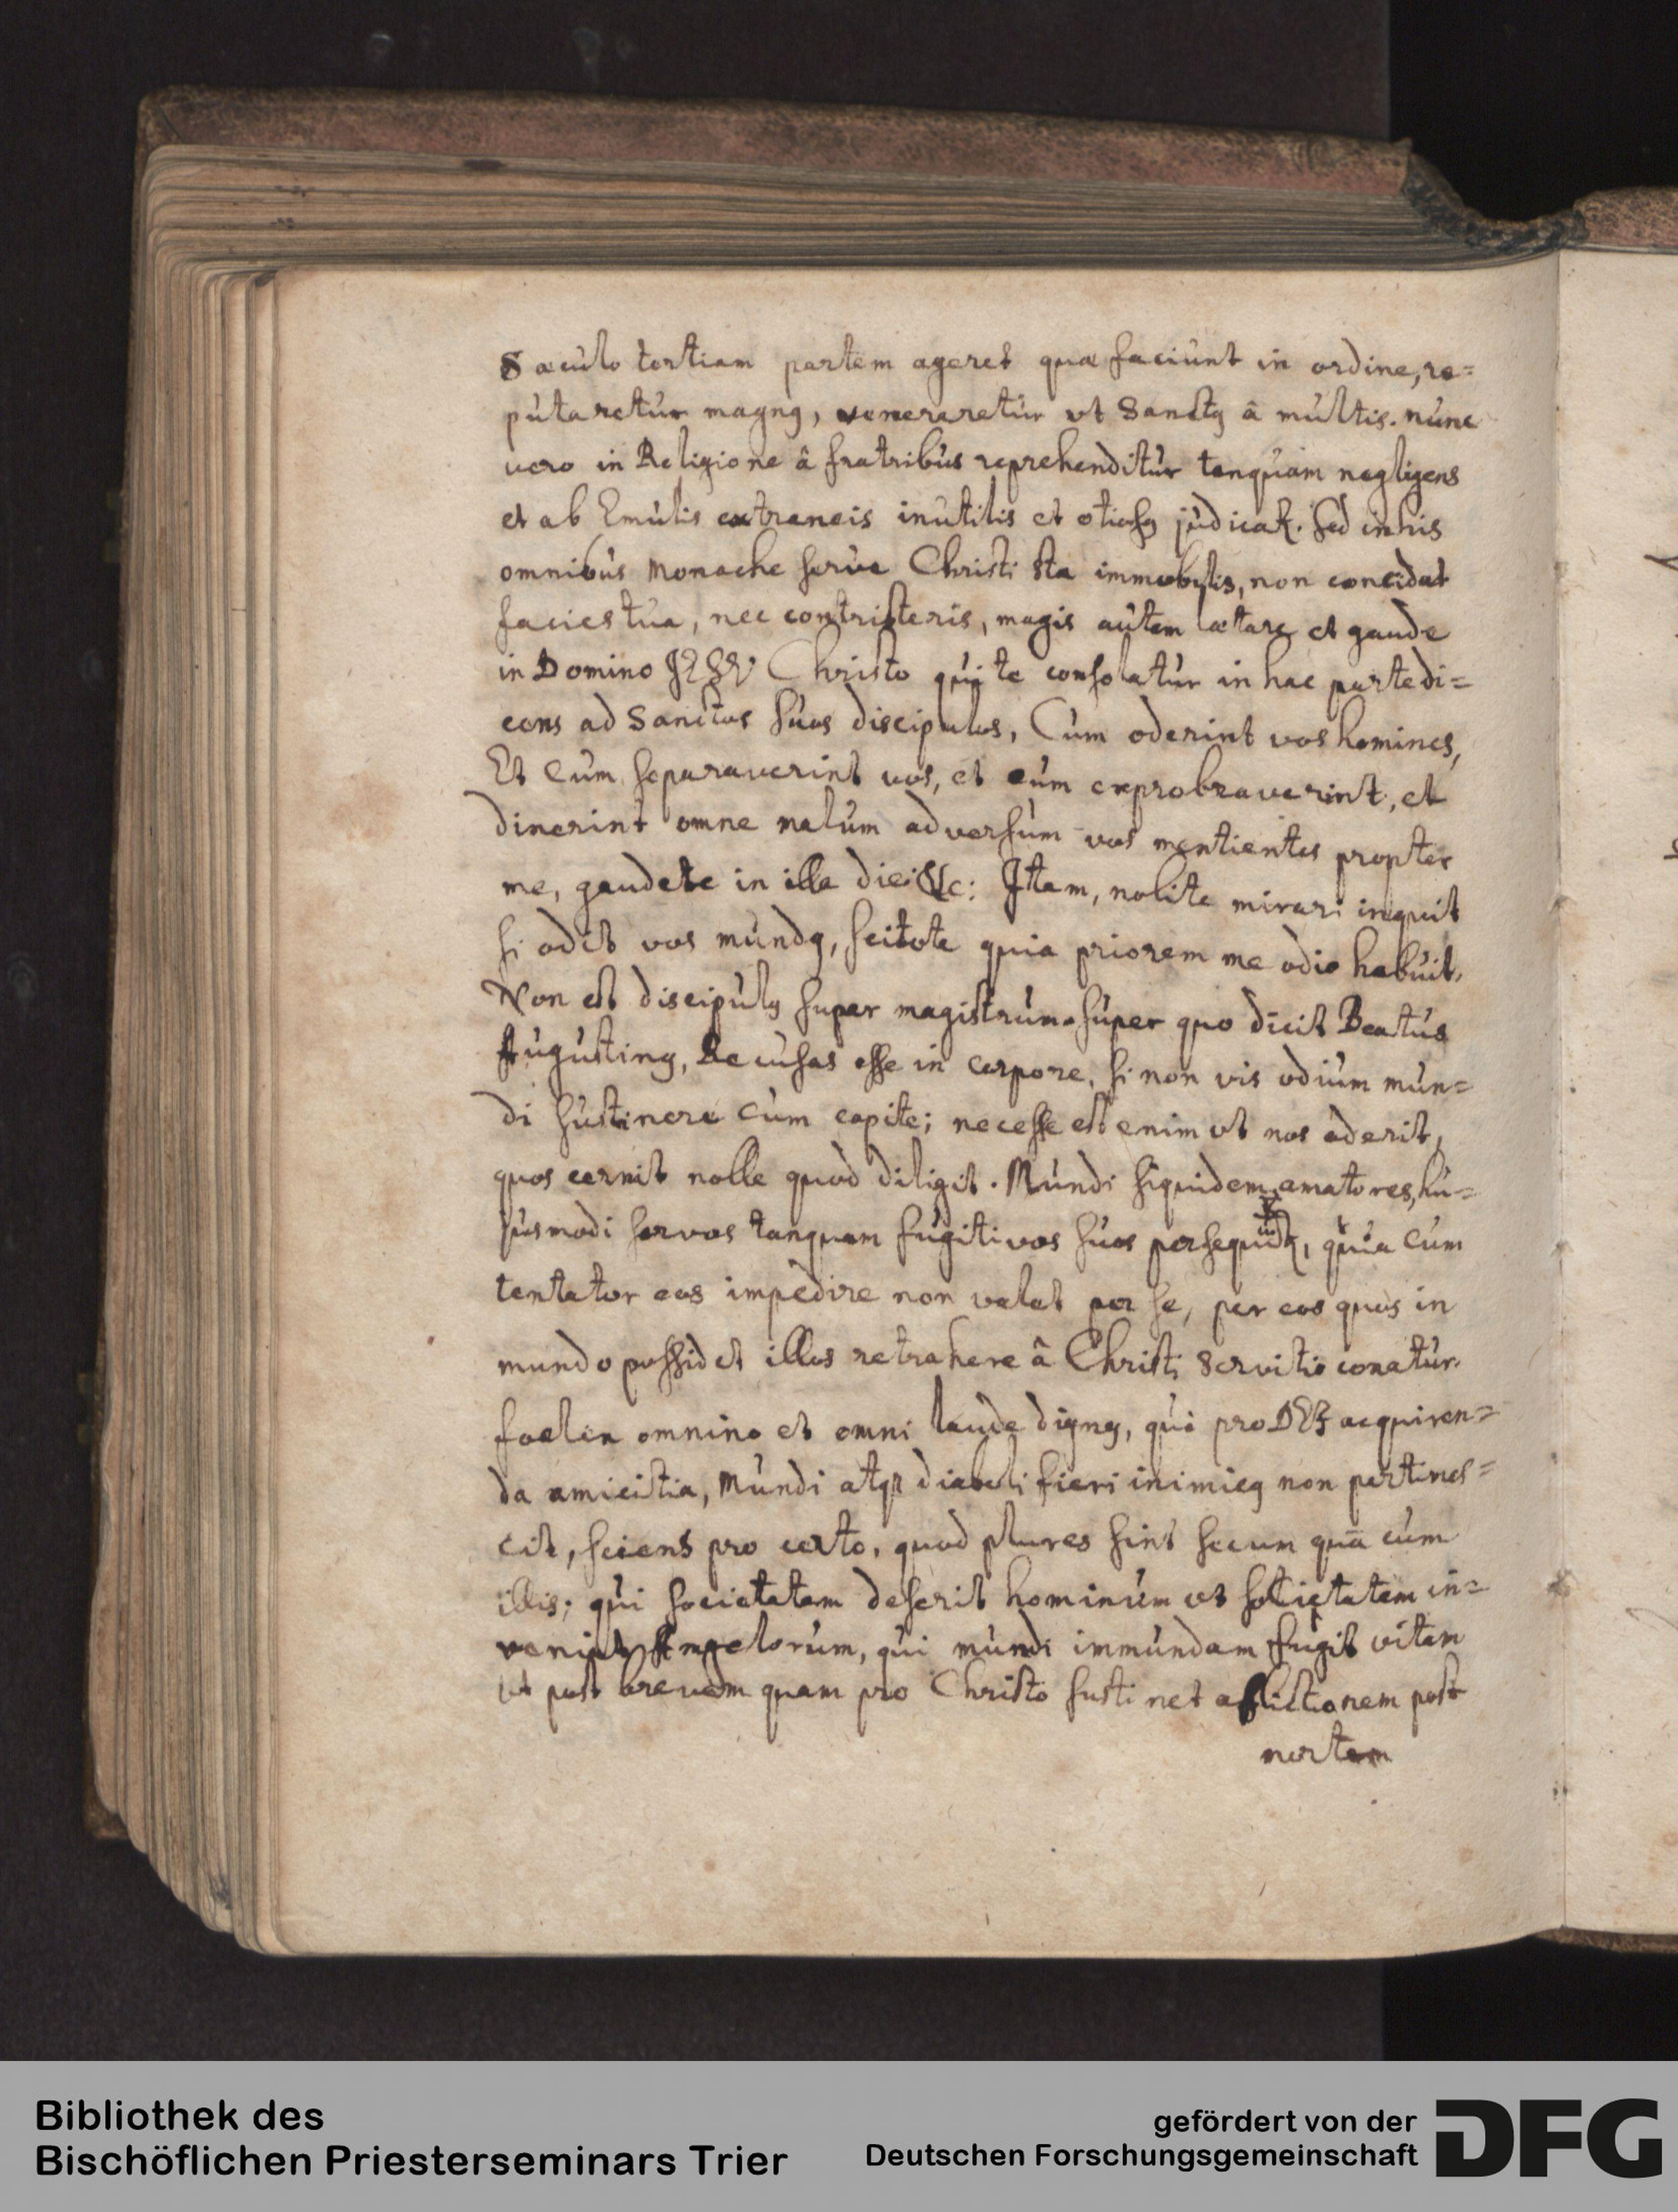 Sæculo tertiam partem ageret quæ faciunt in ordine, re=
putaretur magnꝰ, veneraretur ut Sanctꝰ â multis. nunc
vero in Religione â fratribus reprehenditur tanquam negligens
et ab Emulis extraneis inutilis et otiosꝰ judicat. Sed in his
omnibus Monache serve Christi sta immobylis, non concidat
facies tua, nec contristeris, magis autem lætare et gaude
in Domino JESU Christo qui te consolatur in hac parte di=
cens ad Sanctos suos discipulos, Cum oderint vos homines,
Et Cum separaverint vos, et cum exprobraverint, et
dixerint omne malum adversum vos mentientes propter
me, gaudete in illa die: &c: Item, nolite mirari inquit
si odit vos mundꝰ, scitote quia priorem me odio habuit.
Non est discipulꝰ super magistrum. super quo dicit Beatus
Augustinꝰ, Recusas esse in corpore, si non vis odium mun=
di sustinere cum capite; necesse est enim ut nos oderit,
quos cernit nolle quod diligit. Mundi siquidem amatores, hu=
jusmodi servos tanquam fugitivos suos quia cum
tentator eos impedire non valet per se, per eos quos in
mundo possidet illos retrahere â Christi Servitio conatur.
foelix omnino et omni laude dignꝰ, qui pro DEI acquiren=
da amicitia, Mundi atqꝫ diaboli fieri inimicꝰ non pertimes=
cit, sciens pro certo, quod plures sint secum quā cum
illis; qui societatem deserit hominum ut societatem in=
veniat Angelorum, qui mundi immundam fugit vitam
ut post brevem quam pro Christo sustinet afflictionem post
mortem
Bibliothek des
Bischöflichen Priesterseminars Trier
gefördert von der
Deutschen Forschungsgemeinschaft
DFG